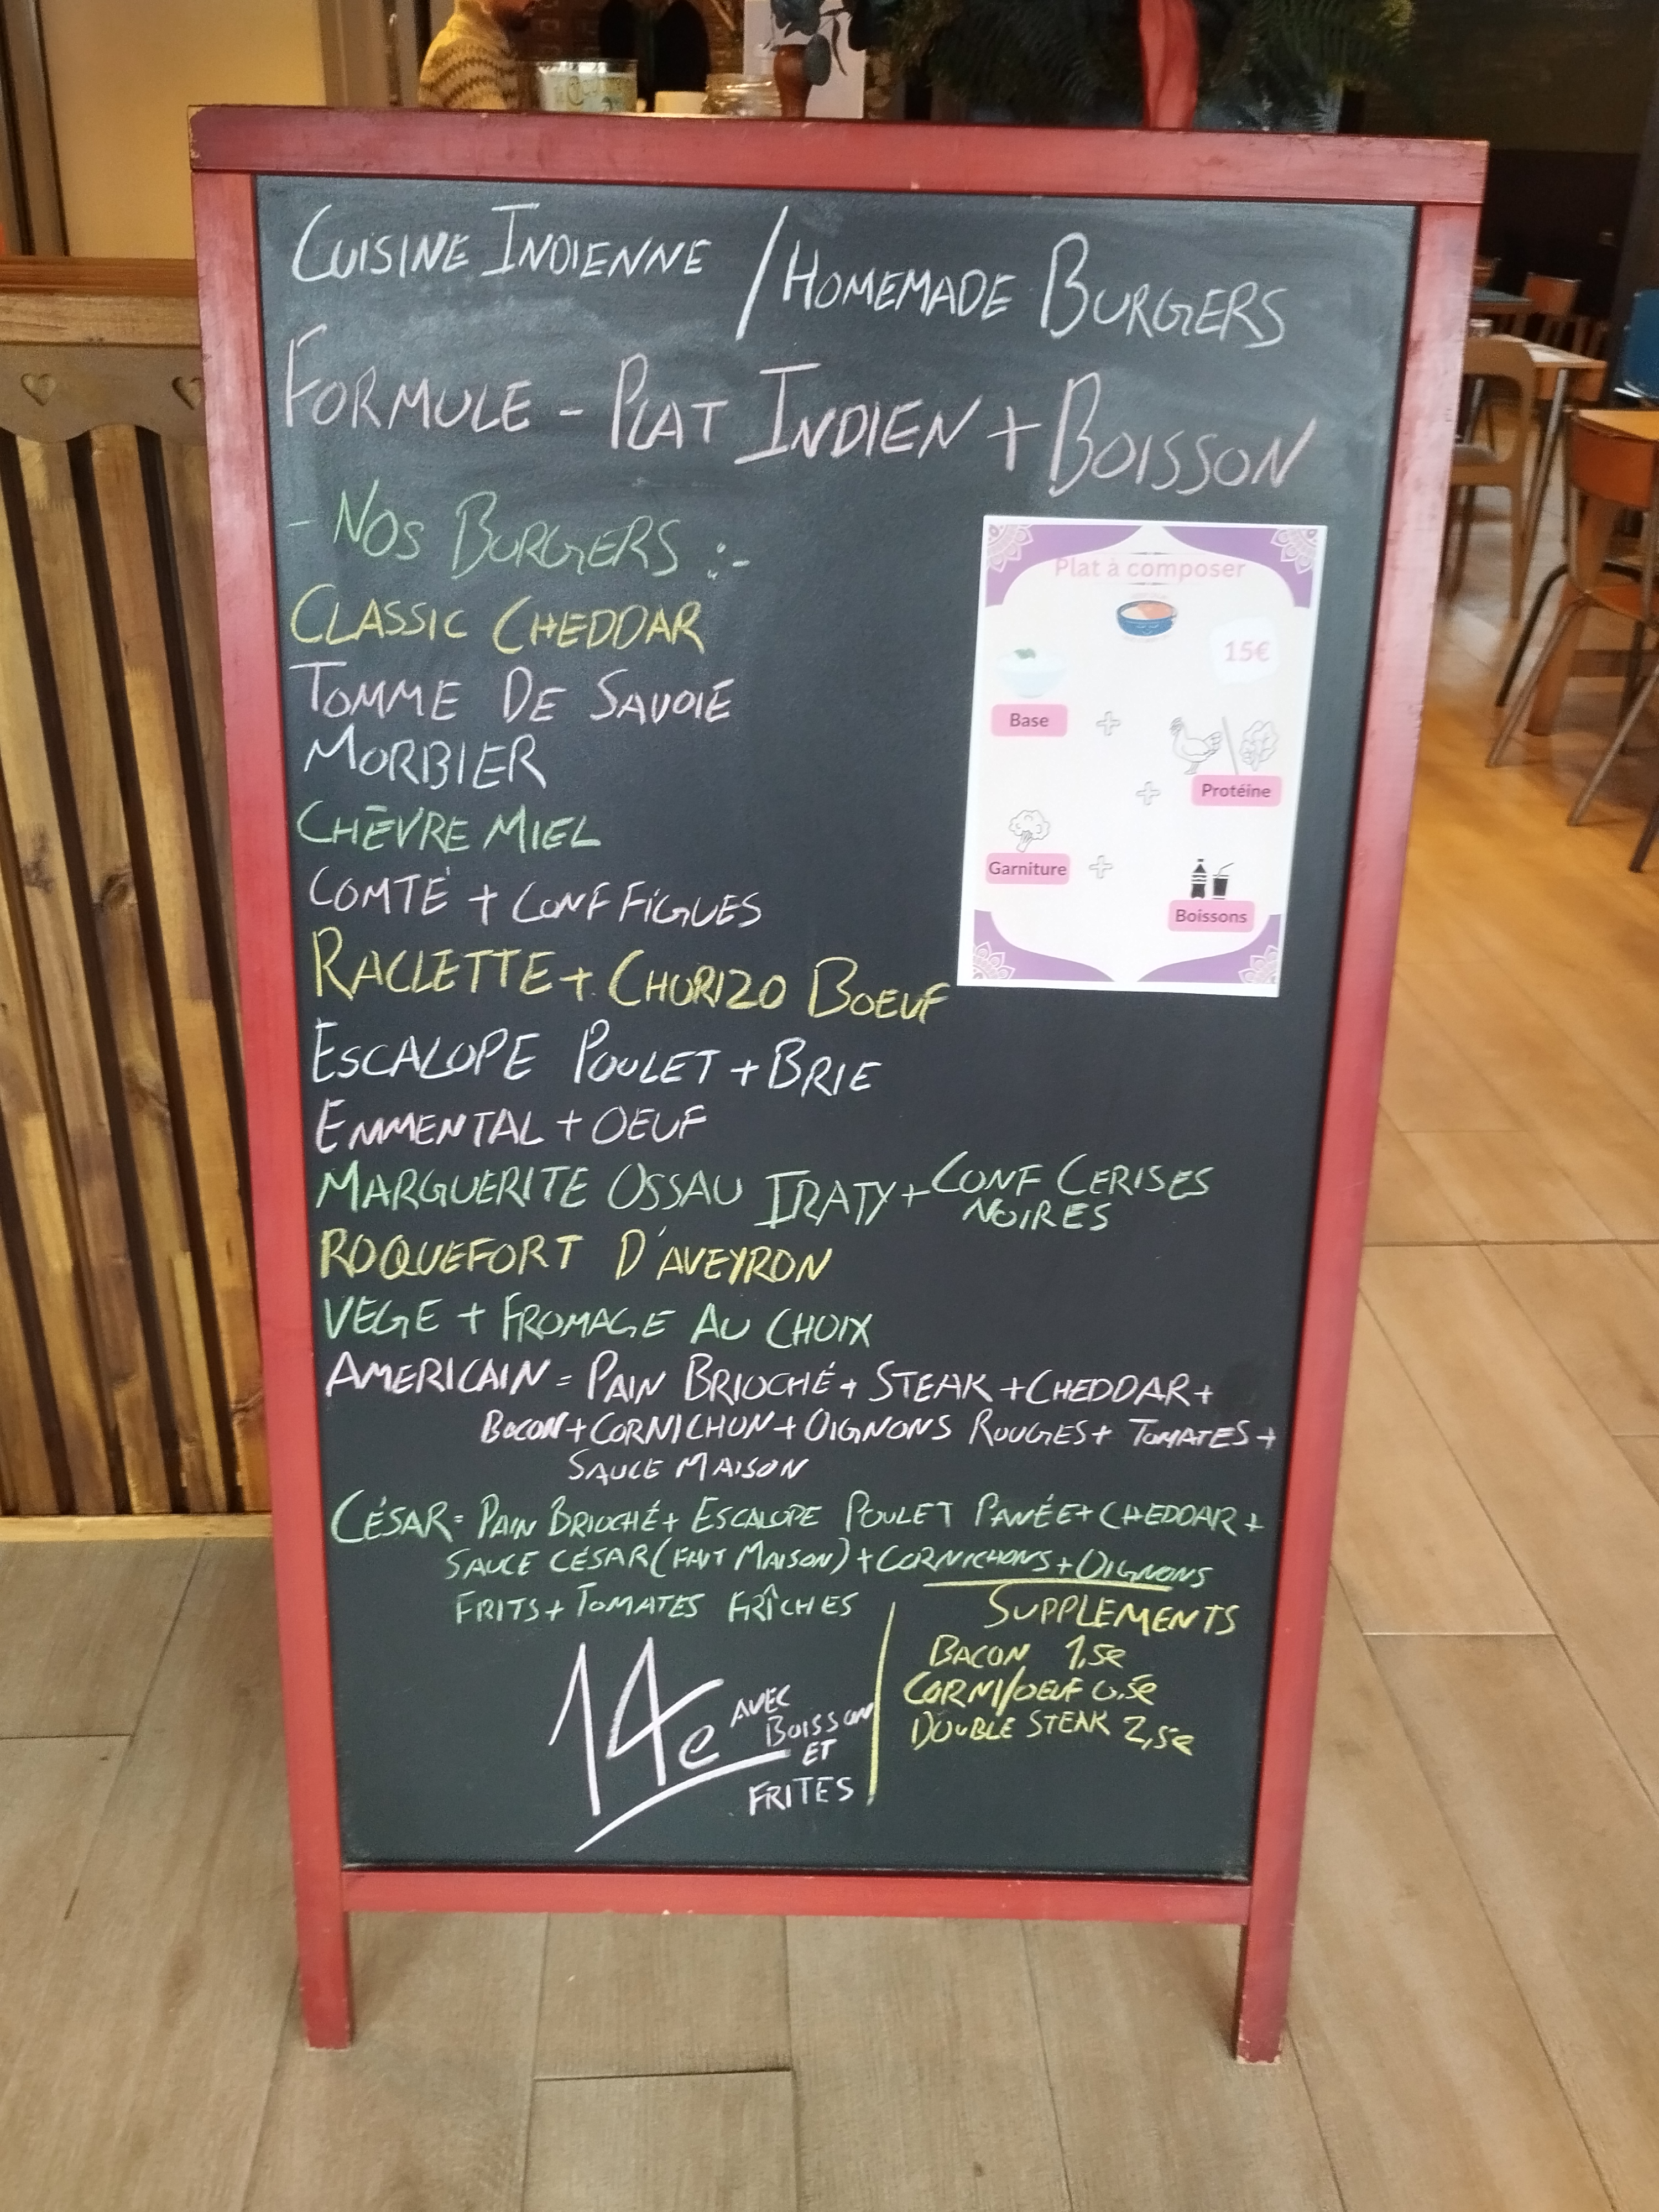 CUISINE INDIENNE / HOMEMADE BURGERS
FORMULE - PLAT INDIEN + BOISSON
- NOS BURGERS :-
CLASSIC CHEDDAR
TOMME DE SAVOIE
MORBIER
CHÈVRE MIEL
COMTÉ + CONF FIGUES
RACLETTE + CHORIZO BOEUF
ESCALOPE POULET + BRIE
EMMENTAL + OEUF
MARGUERITE OSSAU IRATY + CONF CERISES
NOIRES
ROQUEFORT D'AVEYRON
VEGE + FROMAGE AU CHOIX
AMERICAIN = PAIN BRIOCHÉ + STEAK + CHEDDAR +
BACON + CORNICHON + OIGNONS ROUGES + TOMATES +
SAUCE MAISON
CÉSAR = PAIN BRIOCHÉ + ESCALOPE POULET PANÉE + CHEDDAR +
SAUCE CÉSAR (FAIT MAISON) + CORNICHONS + OIGNONS
FRITS + TOMATES FRÎCHES
14e AVEC
BOISSON
ET
FRITES
SUPPLEMENTS
BACON 1,5e
CORNI/OEUF 0,5e
DOUBLE STEAK 2,5e
Plat à composer
15€
Base +
+ Protéine
Garniture +
Boissons